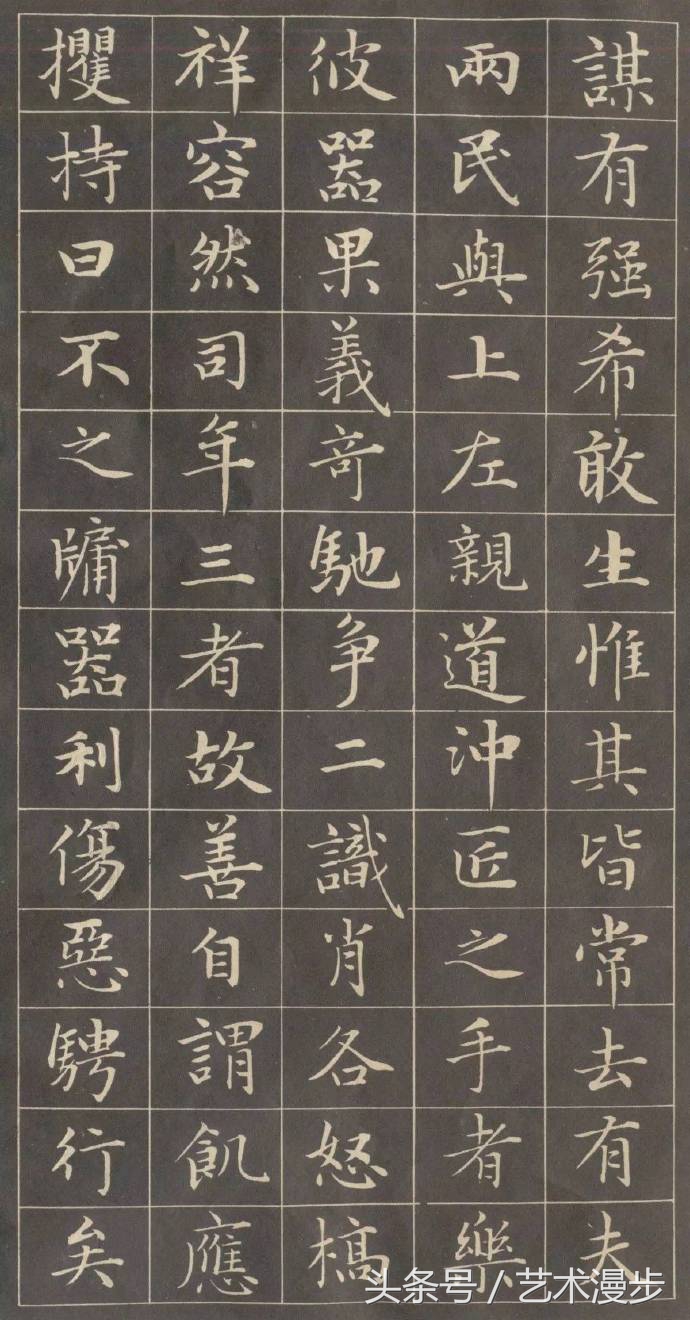 謀有强希敢生惟其皆常去有夫
兩民與上左親道沖匠之手者樂
彼器果義奇馳争二識肖各怒槁
祥容然司年三者故善自謂飢應
攫持曰不之牖器利傷惡騁行矣
头条号 / 艺术漫步